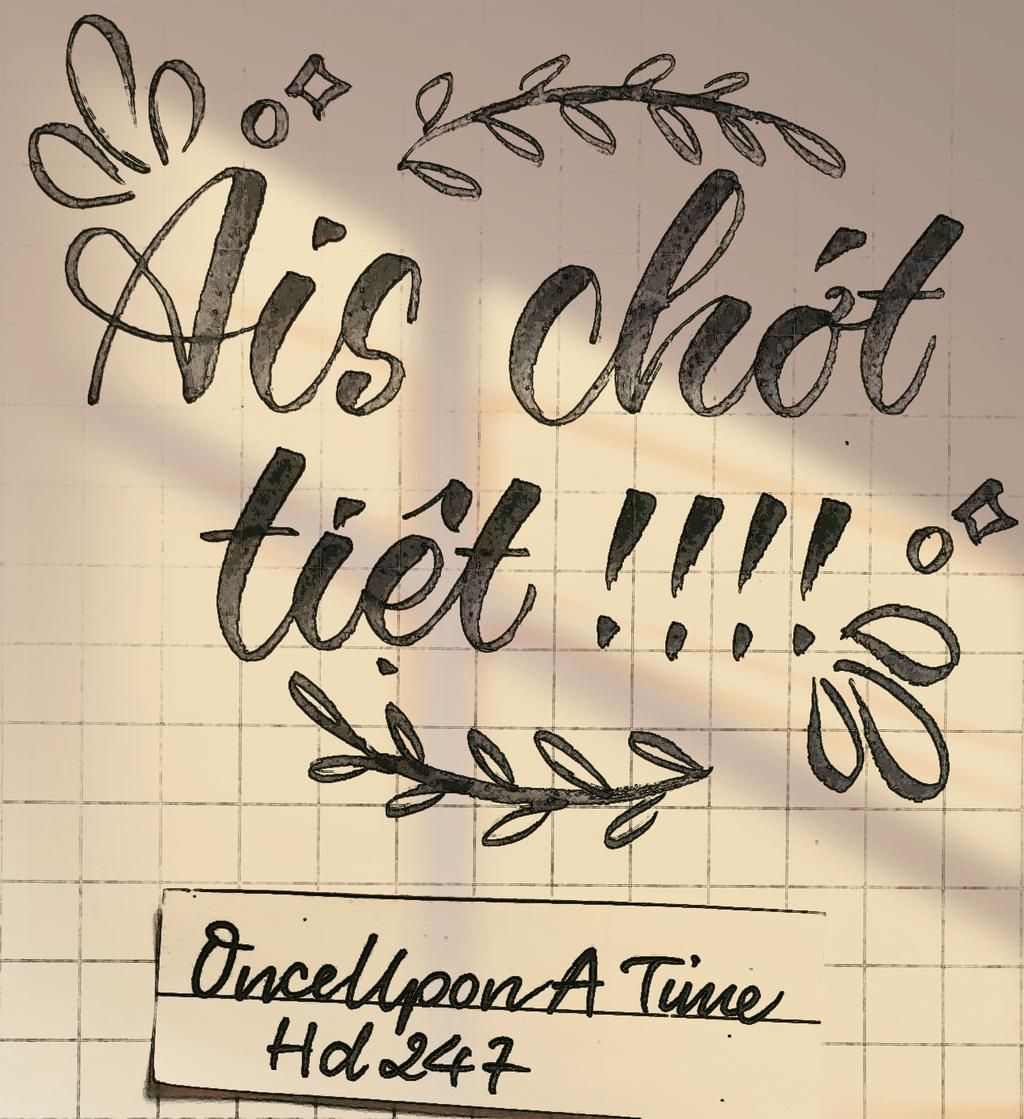 Ais chót
tiệt !!!!
OnceUpon A Time
Hd 247